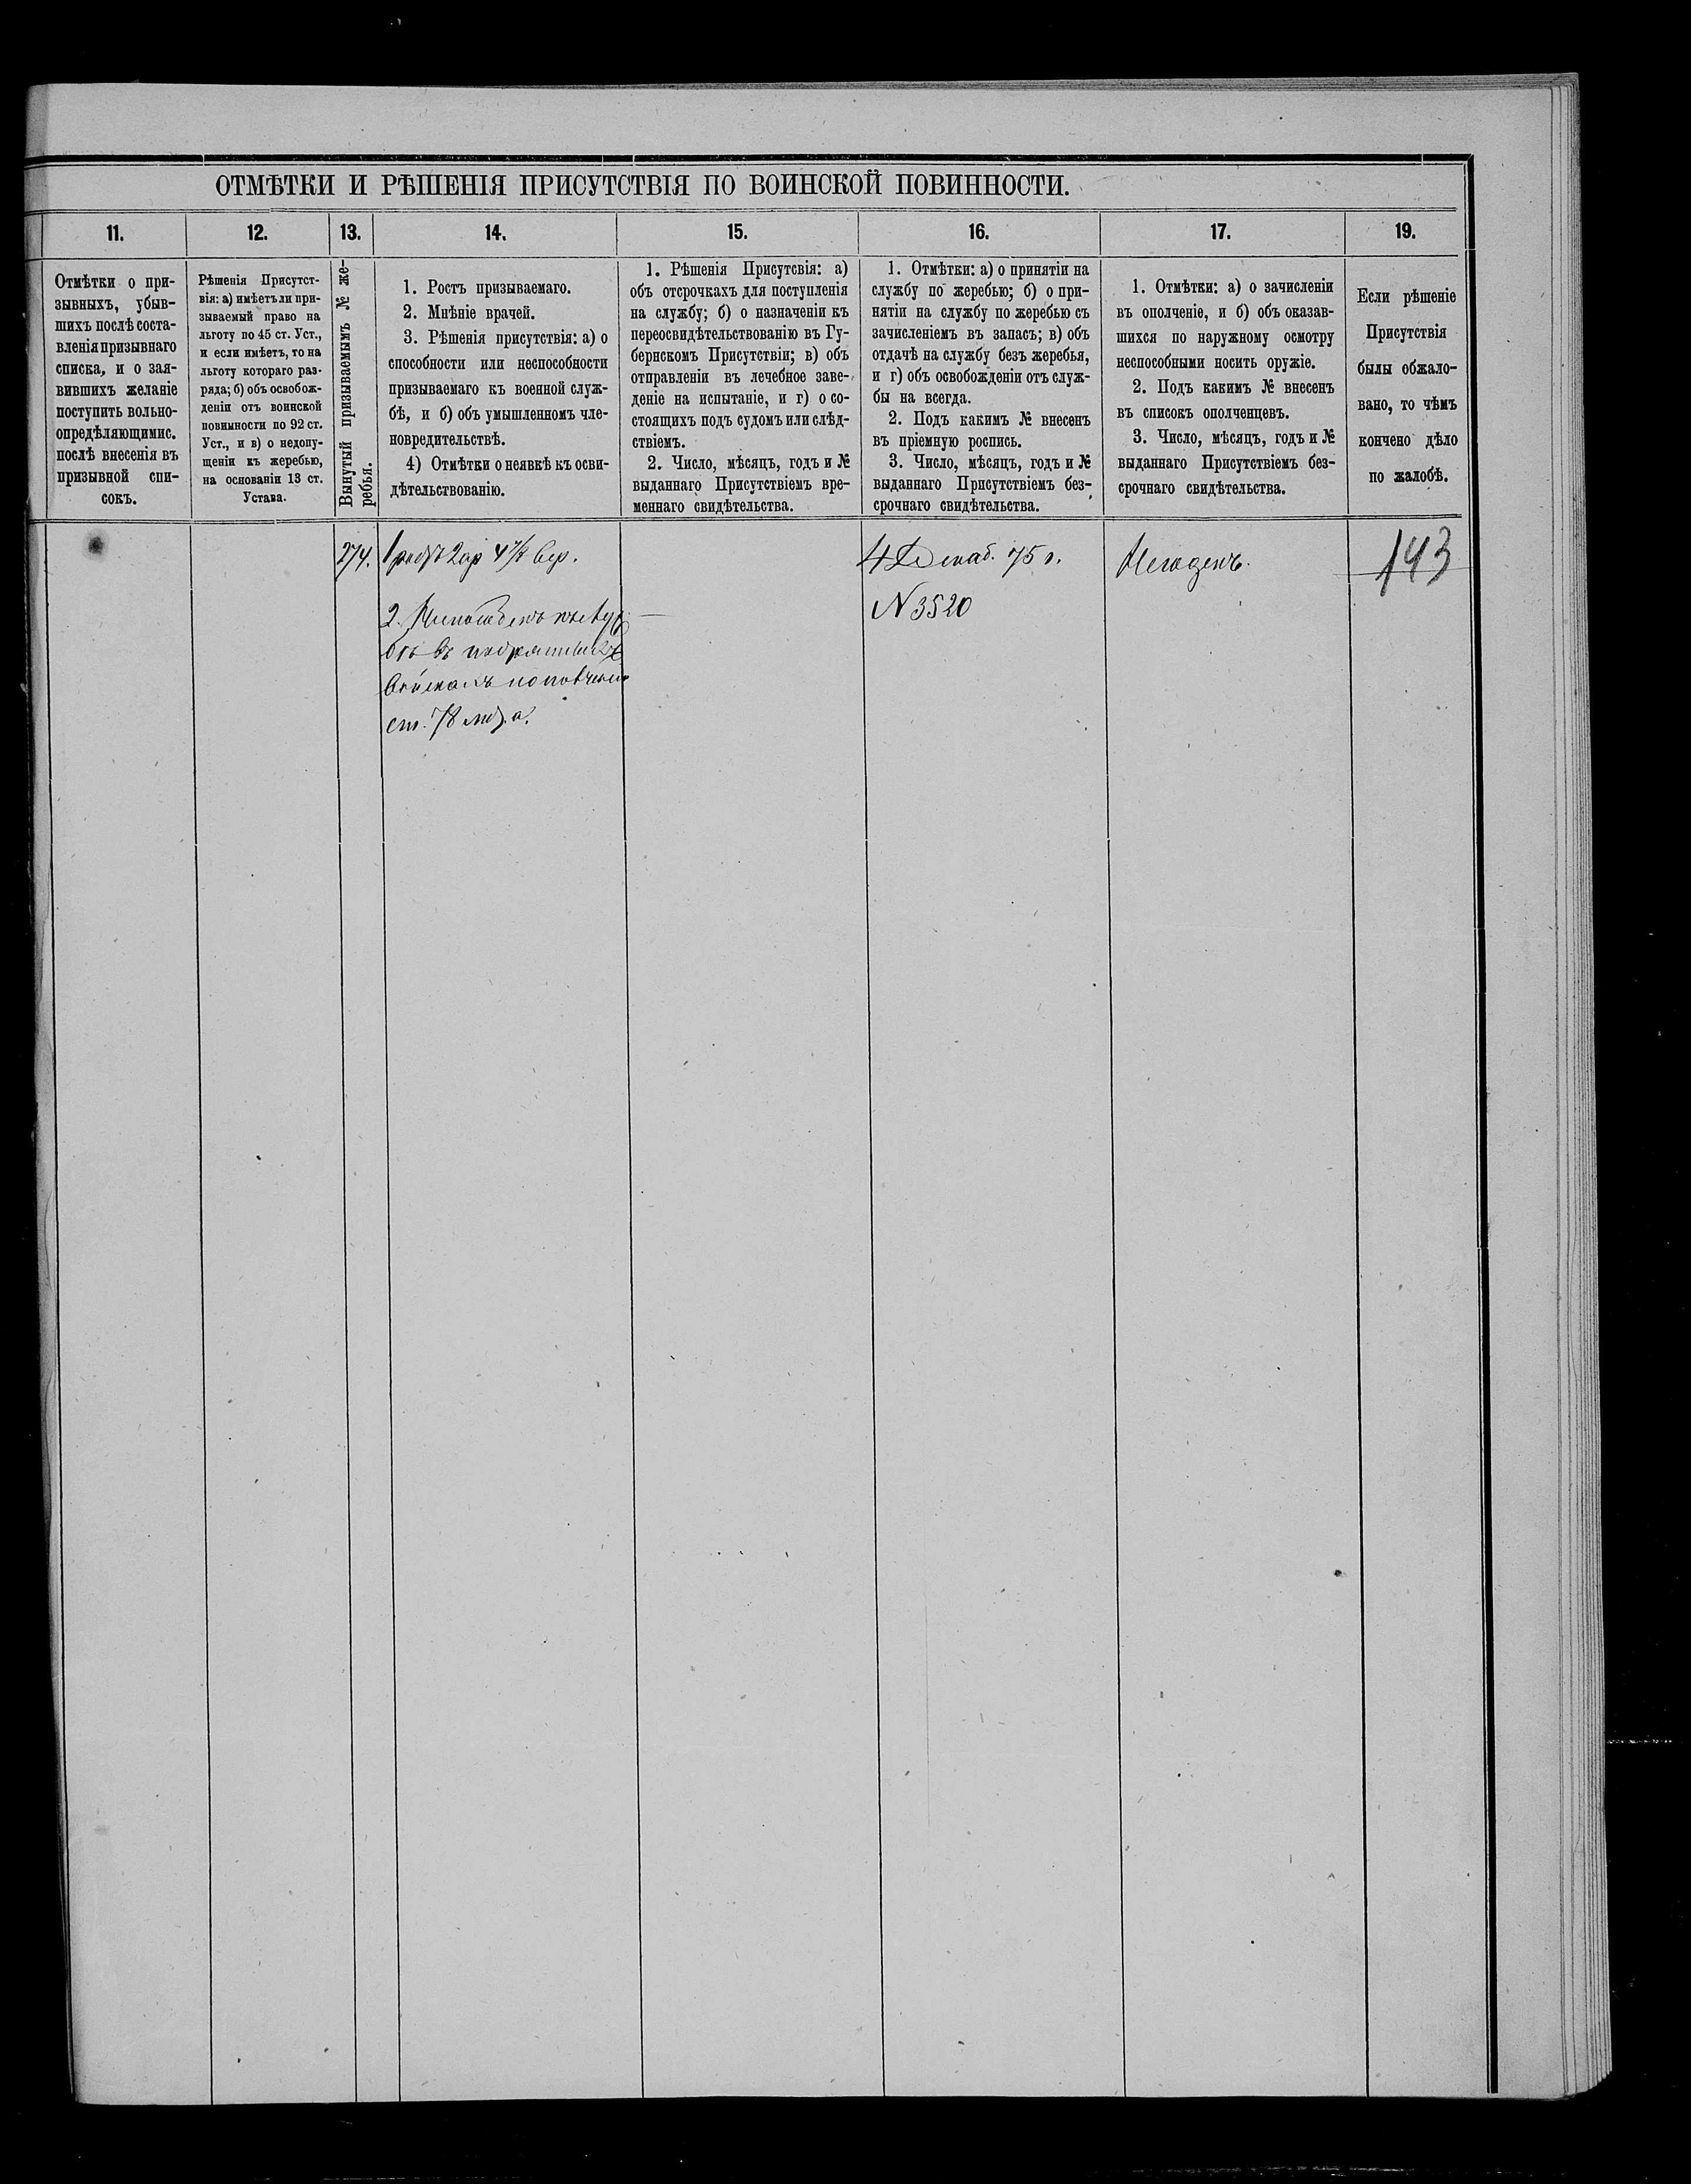 ОТМѢТКИ И РѢШЕНІЯ ПРИСУТСТВІЯ ПО ВОИНСКОЙ ПОВИННОСТИ.
11.
Отмѣтки о при-
зывныхъ, убыв-
шихъ послѣ соста-
вленія призывнаго
списка, и о зая-
вившихъ желаніе
поступить вольно-
опредѣляющимис.
послѣ внесенія въ
призывной спи-
сокъ.
12.
Рѣшенія Присутст-
вія: а) имѣетъ ли при-
зываемый право на
льготу по 45 ст. Уст.,
и если имѣетъ, то на
льготу котораго раз-
ряда; б) объ освобож-
деніи отъ воинской
повинности по 92 ст.
Уст., и в) о недопу-
щеніи къ жеребью,
на основаніи 13 ст.
Устава.
13.
Вынутый призываемымъ № же-
ребья.
274.
14.
1. Ростъ призываемаго.
2. Мнѣніе врачей.
3. Рѣшенія присутствія: а) о
способности или неспособности
призываемаго къ военной служ-
бѣ, и б) объ умышленномъ чле-
новредительствѣ.
4) Отмѣтки о неявкѣ къ осви-
дѣтельствованію.
2 ар 4 1/2 вер.
2.
въ
войскахъ
ст. 78 лит. а.
15.
1. Рѣшенія Присутсвія: а)
объ отсрочкахъ для поступленія
на службу; б) о назначеніи къ
переосвидѣтельствованію въ Гу-
бернскомъ Присутствіи; в) объ
отправленіи въ лечебное заве-
деніе на испытаніе, и г) о со-
стоящихъ подъ судомъ или слѣд-
ствіемъ.
2. Число, мѣсяцъ, годъ и №
выданнаго Присутствіемъ вре-
меннаго свидѣтельства.
16.
1. Отмѣтки: а) о принятіи на
службу по жеребью; б) о при-
нятіи на службу по жеребью съ
зачисленіемъ въ запасъ; в) объ
отдачѣ на службу безъ жеребья,
и г) объ освобожденіи отъ служ-
бы на всегда.
2. Подъ какимъ № внесенъ
въ пріемную роспись.
3. Число, мѣсяцъ, годъ и №
выданнаго Присутствіемъ без-
срочнаго свидѣтельства.
4 Декаб. 75 г.
N 3520
17.
1. Отмѣтки: а) о зачисленіи
въ ополченіе, и б) объ оказав-
шихся по наружному осмотру
неспособными носить оружіе.
2. Подъ какимъ № внесенъ
въ списокъ ополченцевъ.
3. Число, мѣсяцъ, годъ и №
выданнаго Присутствіемъ без-
срочнаго свидѣтельства.
Негоденъ.
19.
Если рѣшеніе
Присутствія
былы обжало-
вано, то чѣмъ
кончено дѣло
по жалобѣ.
143